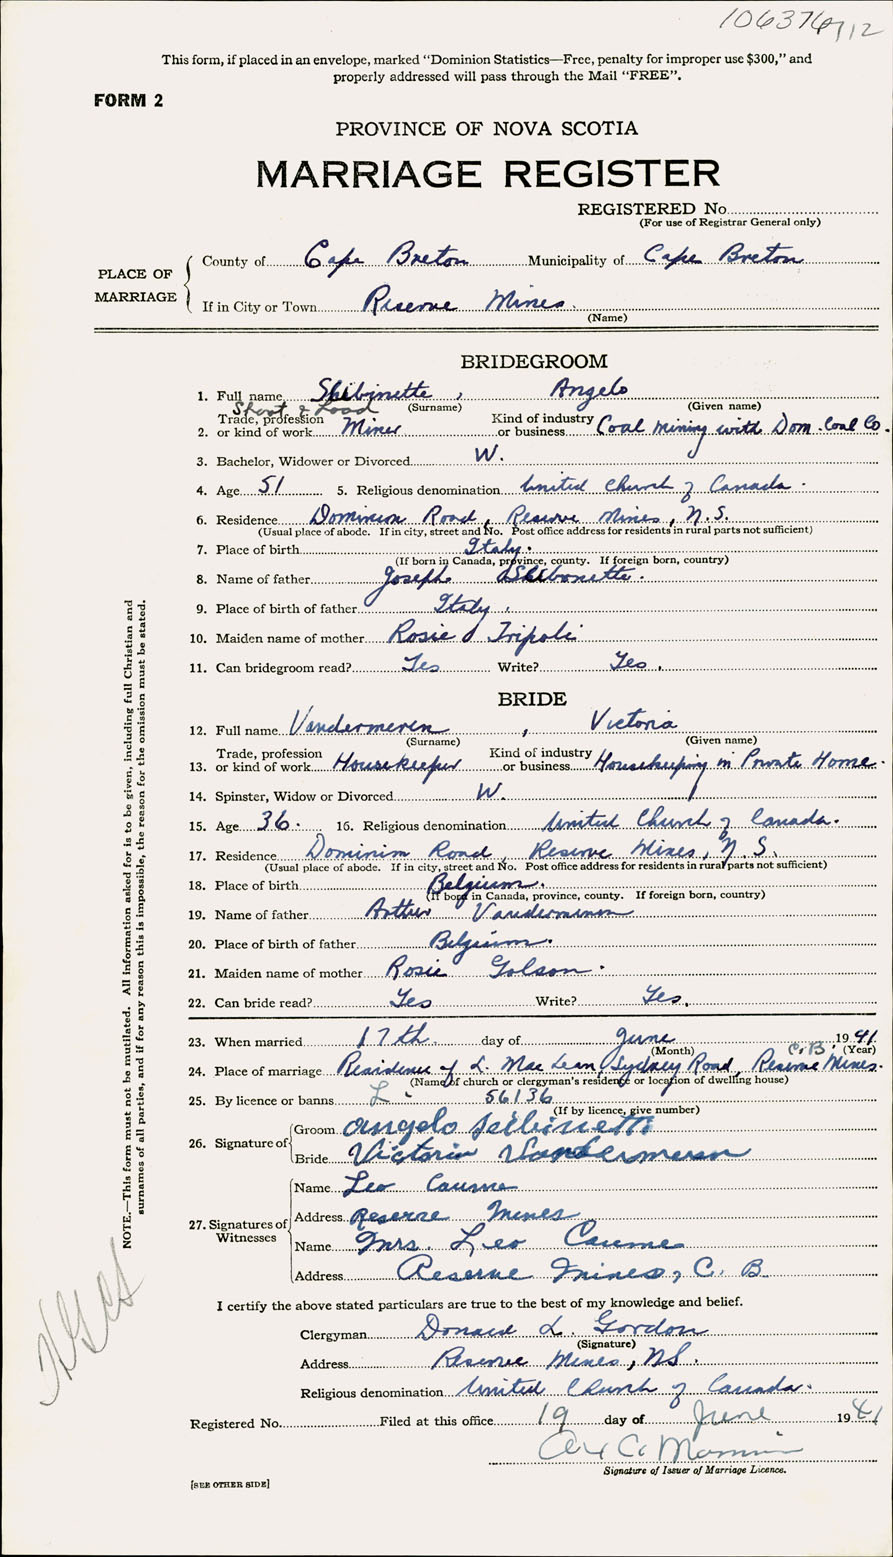 This form, if placed in an envelope, marked "Dominion Statistics—Free, penalty for improper use $300," and
properly addressed will pass through the Mail "FREE".
FORM 2
PROVINCE OF NOVA SCOTIA
MARRIAGE REGISTER
REGISTERED No.
(For use of Registrar General only)
PLACE OF MARRIAGE
County of Cape Breton Municipality of Cape Breton
If in City or Town Reserve Mines.
(Name)
BRIDEGROOM
1. Full name Skibinette, Angelo
(Surname) (Given name)
Shoot & Load
2. Trade, profession or kind of work Miner Kind of industry or business Coal mining with Dom. Coal Co.
3. Bachelor, Widower or Divorced W.
4. Age 51 5. Religious denomination United Church of Canada.
6. Residence Dominion Road, Reserve Mines, N.S.
(Usual place of abode. If in city, street and No. Post office address for residents in rural parts not sufficient)
7. Place of birth Italy.
(If born in Canada, province, county. If foreign born, country)
8. Name of father Joseph
9. Place of birth of father Italy.
10. Maiden name of mother Rosie Tripoli
11. Can bridegroom read? Yes Write? Yes.
BRIDE
12. Full name Vandermeren, Victoria
(Surname) (Given name)
13. Trade, profession or kind of work Housekeeper Kind of industry or business Housekeeping in Private Home.
14. Spinster, Widow or Divorced W.
15. Age 36. 16. Religious denomination United Church of Canada.
17. Residence Dominion Road, Reserve Mines, N.S.
(Usual place of abode. If in city, street and No. Post office address for residents in rural parts not sufficient)
18. Place of birth Belgium.
(If born in Canada, province, county. If foreign born, country)
19. Name of father Arther
20. Place of birth of father Belgium.
21. Maiden name of mother Rosie Golson.
22. Can bride read? Yes Write? Yes.
23. When married 17th day of June 1941
(Month) (Year)
C.B.
24. Place of marriage Residence of L. MacLean, Sydney Road, Reserve Mines.
(Name of church or clergyman's residence or location of dwelling house)
25. By licence or banns L. 56136
(If by licence, give number)
26. Signature of Groom Angelo
Bride Victoria
27. Signatures of Witnesses
Name Leo Caume
Address Reserve Mines
Name Mrs. Leo Caume
Address Reserve Mines, C. B.
I certify the above stated particulars are true to the best of my knowledge and belief.
Clergyman Donald L. Gordon
(Signature)
Address Reserve Mines, NS.
Religious denomination United Church of Canada.
Registered No. Filed at this office 19 day of June 1941
Signature of Issuer of Marriage Licence.
[SEE OTHER SIDE]
NOTE.—This form must not be mutilated. All information asked for is to be given, including full Christian and
surnames of all parties, and if for any reason this is impossible, the reason for the omission must be stated.